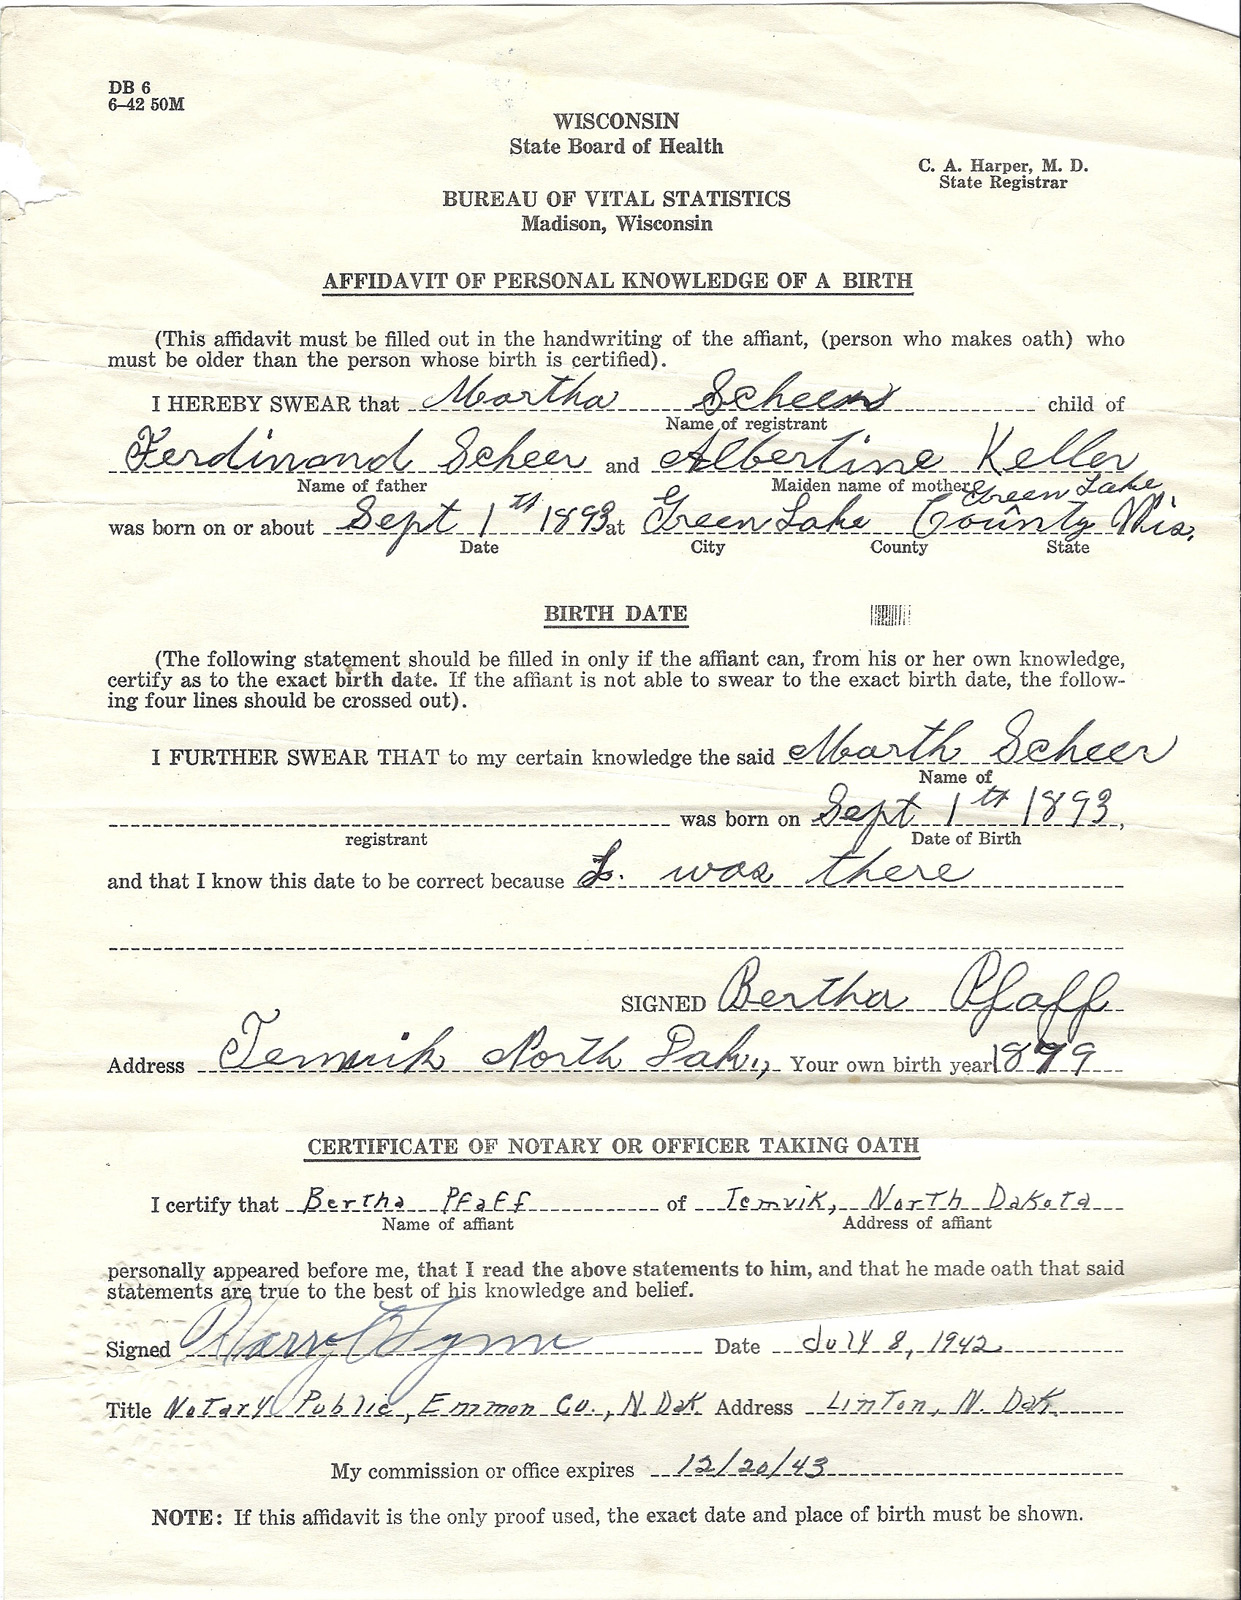 DB 6
6–42 50M
WISCONSIN
State Board of Health
C. A. Harper, M. D.
State Registrar
BUREAU OF VITAL STATISTICS
Madison, Wisconsin
AFFIDAVIT OF PERSONAL KNOWLEDGE OF A BIRTH
(This affidavit must be filled out in the handwriting of the affiant, (person who makes oath) who
must be older than the person whose birth is certified).
I HEREBY SWEAR that Martha Scheer child of
Name of registrant
Ferdinand Scheer and Albertine Keller
Name of father Maiden name of mother
Green Lake
was born on or about Sept 1th 1893 at Green Lake County Wis.
Date City County State
BIRTH DATE
(The following statement should be filled in only if the affiant can, from his or her own knowledge,
certify as to the exact birth date. If the affiant is not able to swear to the exact birth date, the follow-
ing four lines should be crossed out).
I FURTHER SWEAR THAT to my certain knowledge the said Marth Scheer
Name of
was born on Sept 1th 1893,
registrant Date of Birth
and that I know this date to be correct because I. was there
SIGNED Bertha Pfaff
Address Temvik North Dak., Your own birth year 1879
CERTIFICATE OF NOTARY OR OFFICER TAKING OATH
I certify that Bertha Pfaff of Temvik, North Dakota
Name of affiant Address of affiant
personally appeared before me, that I read the above statements to him, and that he made oath that said
statements are true to the best of his knowledge and belief.
Signed Harry Lynn Date July 8, 1942
Title Notary Public, Emmon Co., N. Dak Address Linton, N. Dak
My commission or office expires 12/20/43
NOTE: If this affidavit is the only proof used, the exact date and place of birth must be shown.